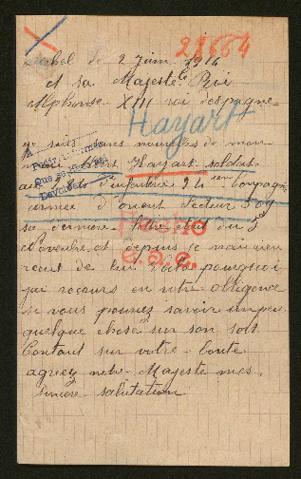 28664
de 2 juin 1916
A sa Majesté le Roi
Alphonse XIII roi despagne
Hayart
je suis sans nouvelles de mon
Hayart soldat
d'infanterie 24 eme Compagnie
armée d'orient Secteur 509
sa dernière lettre était du 5
Novembre et depuis je n'ai rien
recut de lui. Voila pourquoi
jai recours en votre obligence
si vous pouvez savoir un peu
quelque chose sur son sort
Contant sur votre bonté
agreez notre Majeste mes
sincere salutation